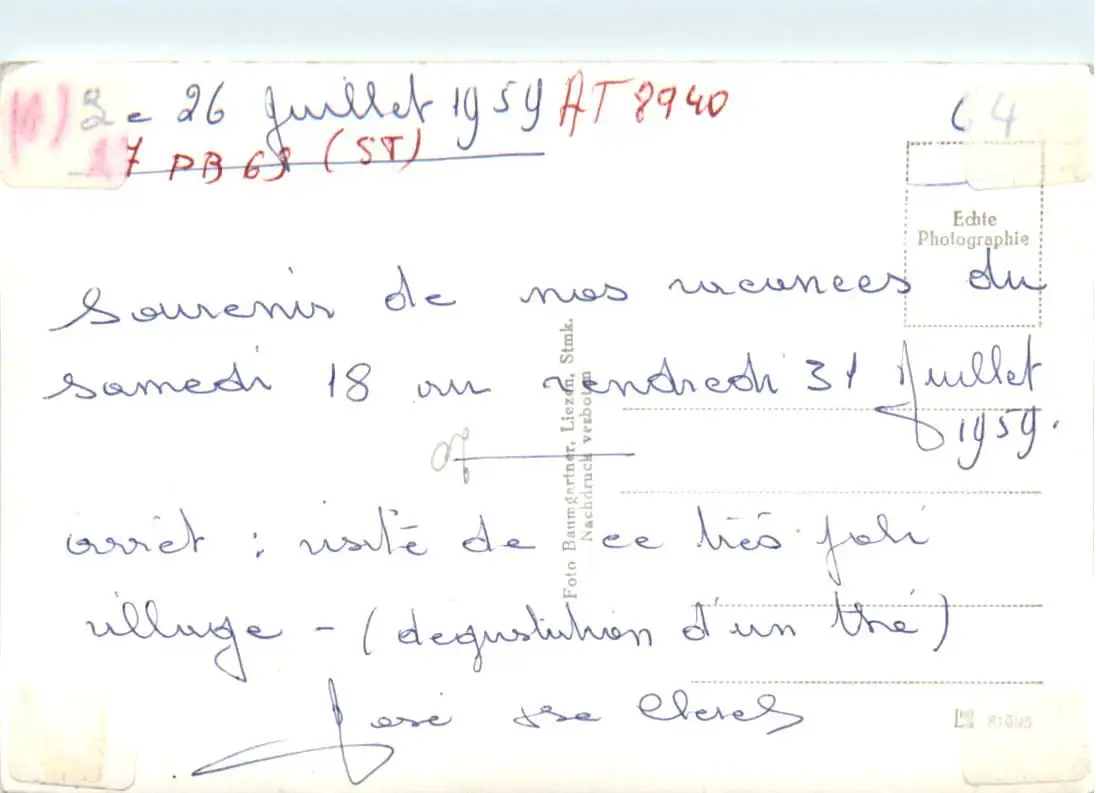 26 Juillet 1959 AT 8940
7 PB 63 (ST)
64
Echte
Photographie
Souvenir de nos vacances du
samedi 18 au vendredi 31 Juillet
1959.
arrêt : visite de ce très joli
village - (dégustation d'un thé)
José
Foto Baumgartner, Liezen, Stmk.
Nachdruck verboten